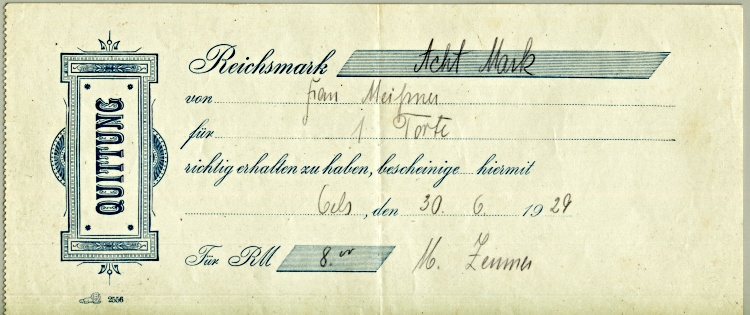 QUITTUNG
Reichsmark Acht Mark
von Frau Meißner
für 1 Torte
richtig erhalten zu haben, bescheinige hiermit
Oels, den 30. 6. 1929
Für RM 8.
M.
2556